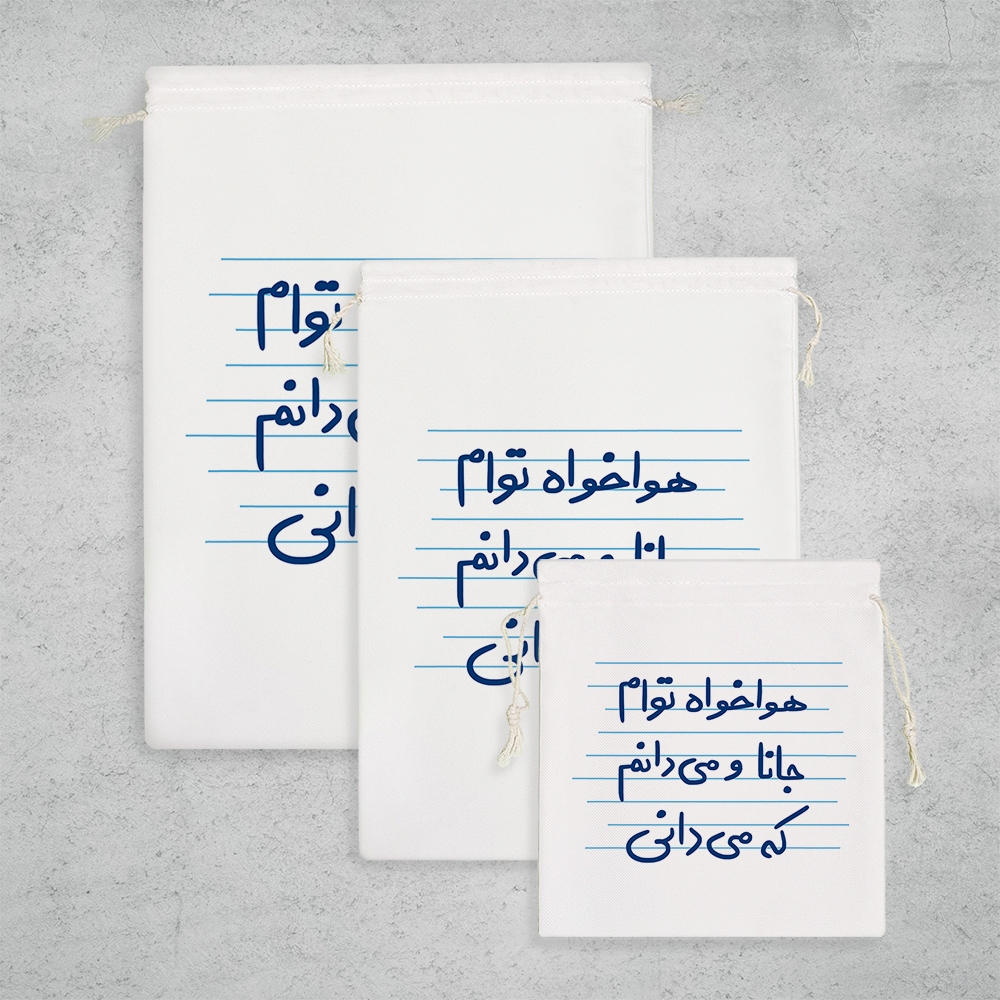 توام
دانم
انی
هواخواه توام
دانم
انی
هواخواه توام
جانا و می‌دانم
که می‌دانی